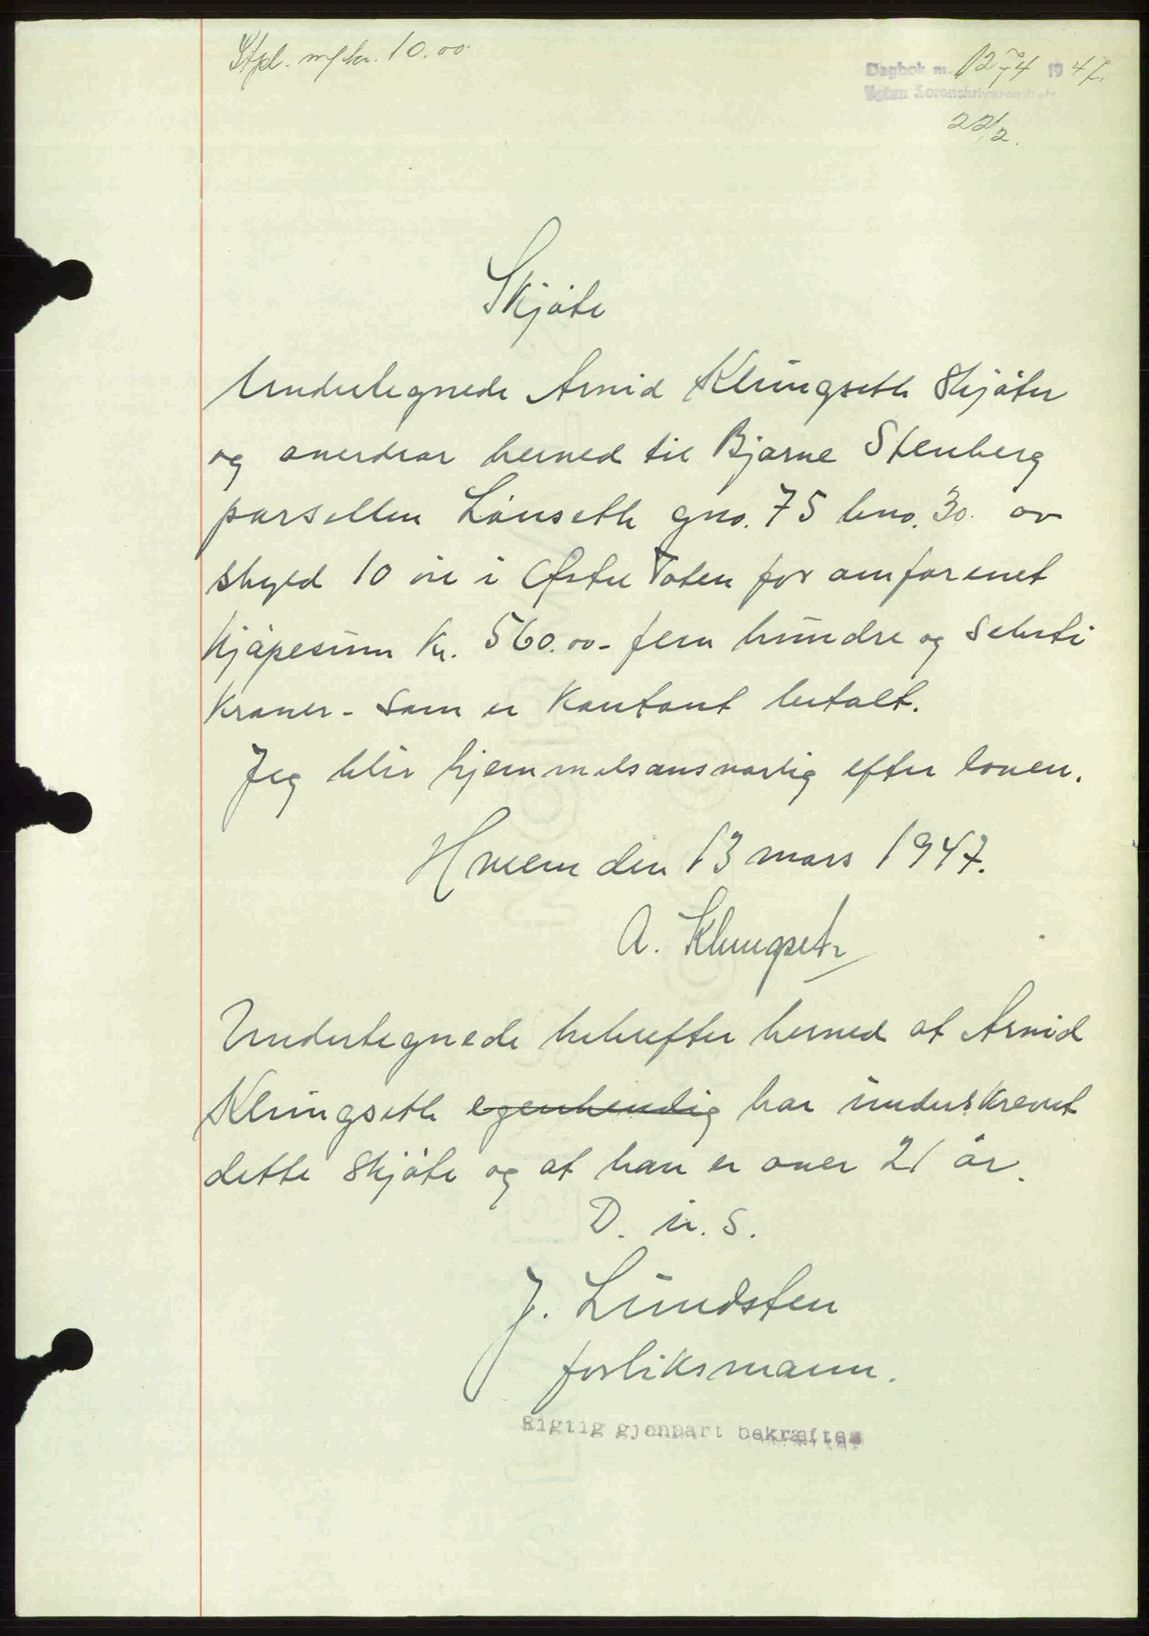 Stpl. m/kr. 10.00
Dagbok nr. 1274 1947.
Toten Sorenskriverembete
22/2.
Skjøte
Undertegnede Arnid Klungseth Skjøter
og overdrar herved til Bjarne Stenberg
parsellen Lønseth gno. 75 bno. 30. av
skyld 10 øre i Østre Toten for omforenet
kjøpesum kr. 560.00 - fem hundre og seksti
kroner - som er kontant betalt.
Jeg blir hjemmelsansvarlig efter loven.
Hveem den 13 mars 1947.
A. Klungseth
Undertegnede bekrefter herved at Arnid
Klungseth egenhendig har underskrevet
dette skjøte og at han er over 21 år.
D. u. s.
J. Lundsten
forliksmann.
Rigtig gjenpart bekræftes